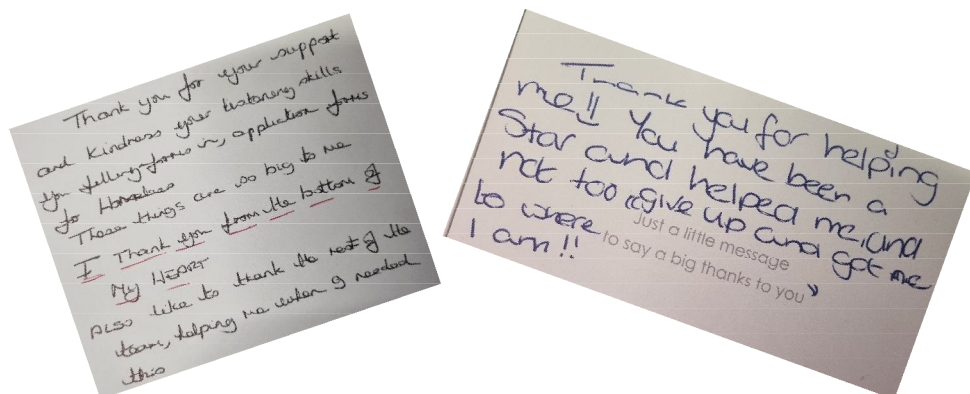 Thank you for your support
and Kindness your listening skills
you filling forms in, application forms
for Homeless
These things are so big to me
I Thank you from the bottom of
My HEART
ALSO like to thank the rest of the
team, helping me when I needed
this
Thank you for helping
me!! You have been a
Star and helped me, and
not too "give up and got me
to where
I am!!
Just a little message
to say a big thanks to you